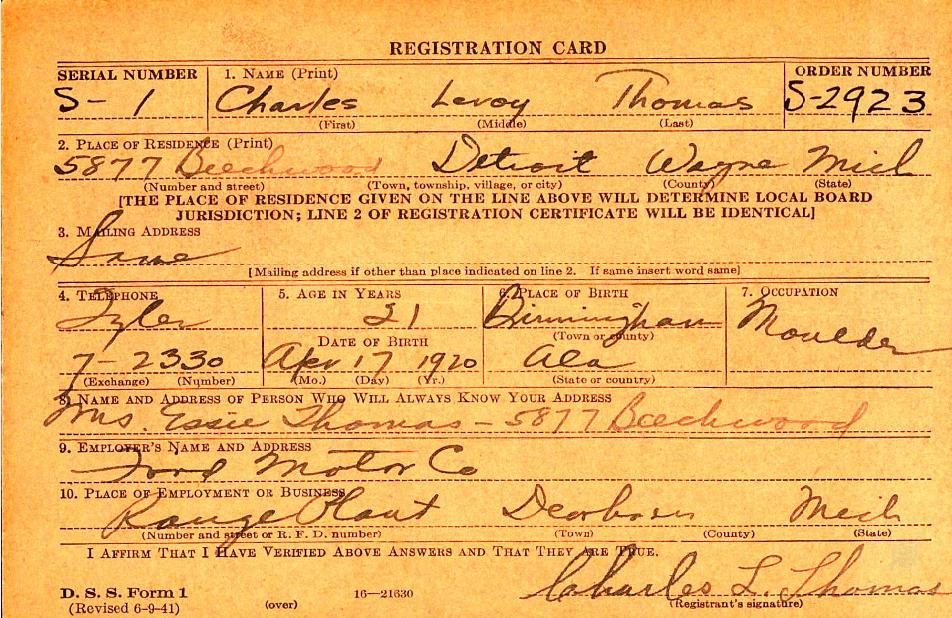 REGISTRATION CARD
SERIAL NUMBER 1. NAME (Print) ORDER NUMBER
S- 1 Charles Leroy Thomas S-2923
(First) (Middle) (Last)
2. PLACE OF RESIDENCE (Print)
5877 Beechwood Detroit Wayne Mich
(Number and street) (Town, township, village, or city) (County) (State)
[THE PLACE OF RESIDENCE GIVEN ON THE LINE ABOVE WILL DETERMINE LOCAL BOARD
JURISDICTION; LINE 2 OF REGISTRATION CERTIFICATE WILL BE IDENTICAL]
3. MAILING ADDRESS
Same
[Mailing address if other than place indicated on line 2. If same insert word same]
4. TELEPHONE 5. AGE IN YEARS 6. PLACE OF BIRTH 7. OCCUPATION
Tyler 21 Birmingham Moulder
DATE OF BIRTH (Town or county)
7-2330 Apr 17 1920 Ala
(Exchange) (Number) (Mo.) (Day) (Yr.) (State or country)
8. NAME AND ADDRESS OF PERSON WHO WILL ALWAYS KNOW YOUR ADDRESS
Mrs. Essie Thomas - 5877 Beechwood
9. EMPLOYER'S NAME AND ADDRESS
Ford Motor Co
10. PLACE OF EMPLOYMENT OR BUSINESS
Rouge Plant Dearborn Mich
(Number and street or R. F. D. number) (Town) (County) (State)
I AFFIRM THAT I HAVE VERIFIED ABOVE ANSWERS AND THAT THEY ARE TRUE.
Charles L. Thomas
D. S. S. Form 1 16—21630
(Revised 6-9-41) (over) (Registrant's signature)